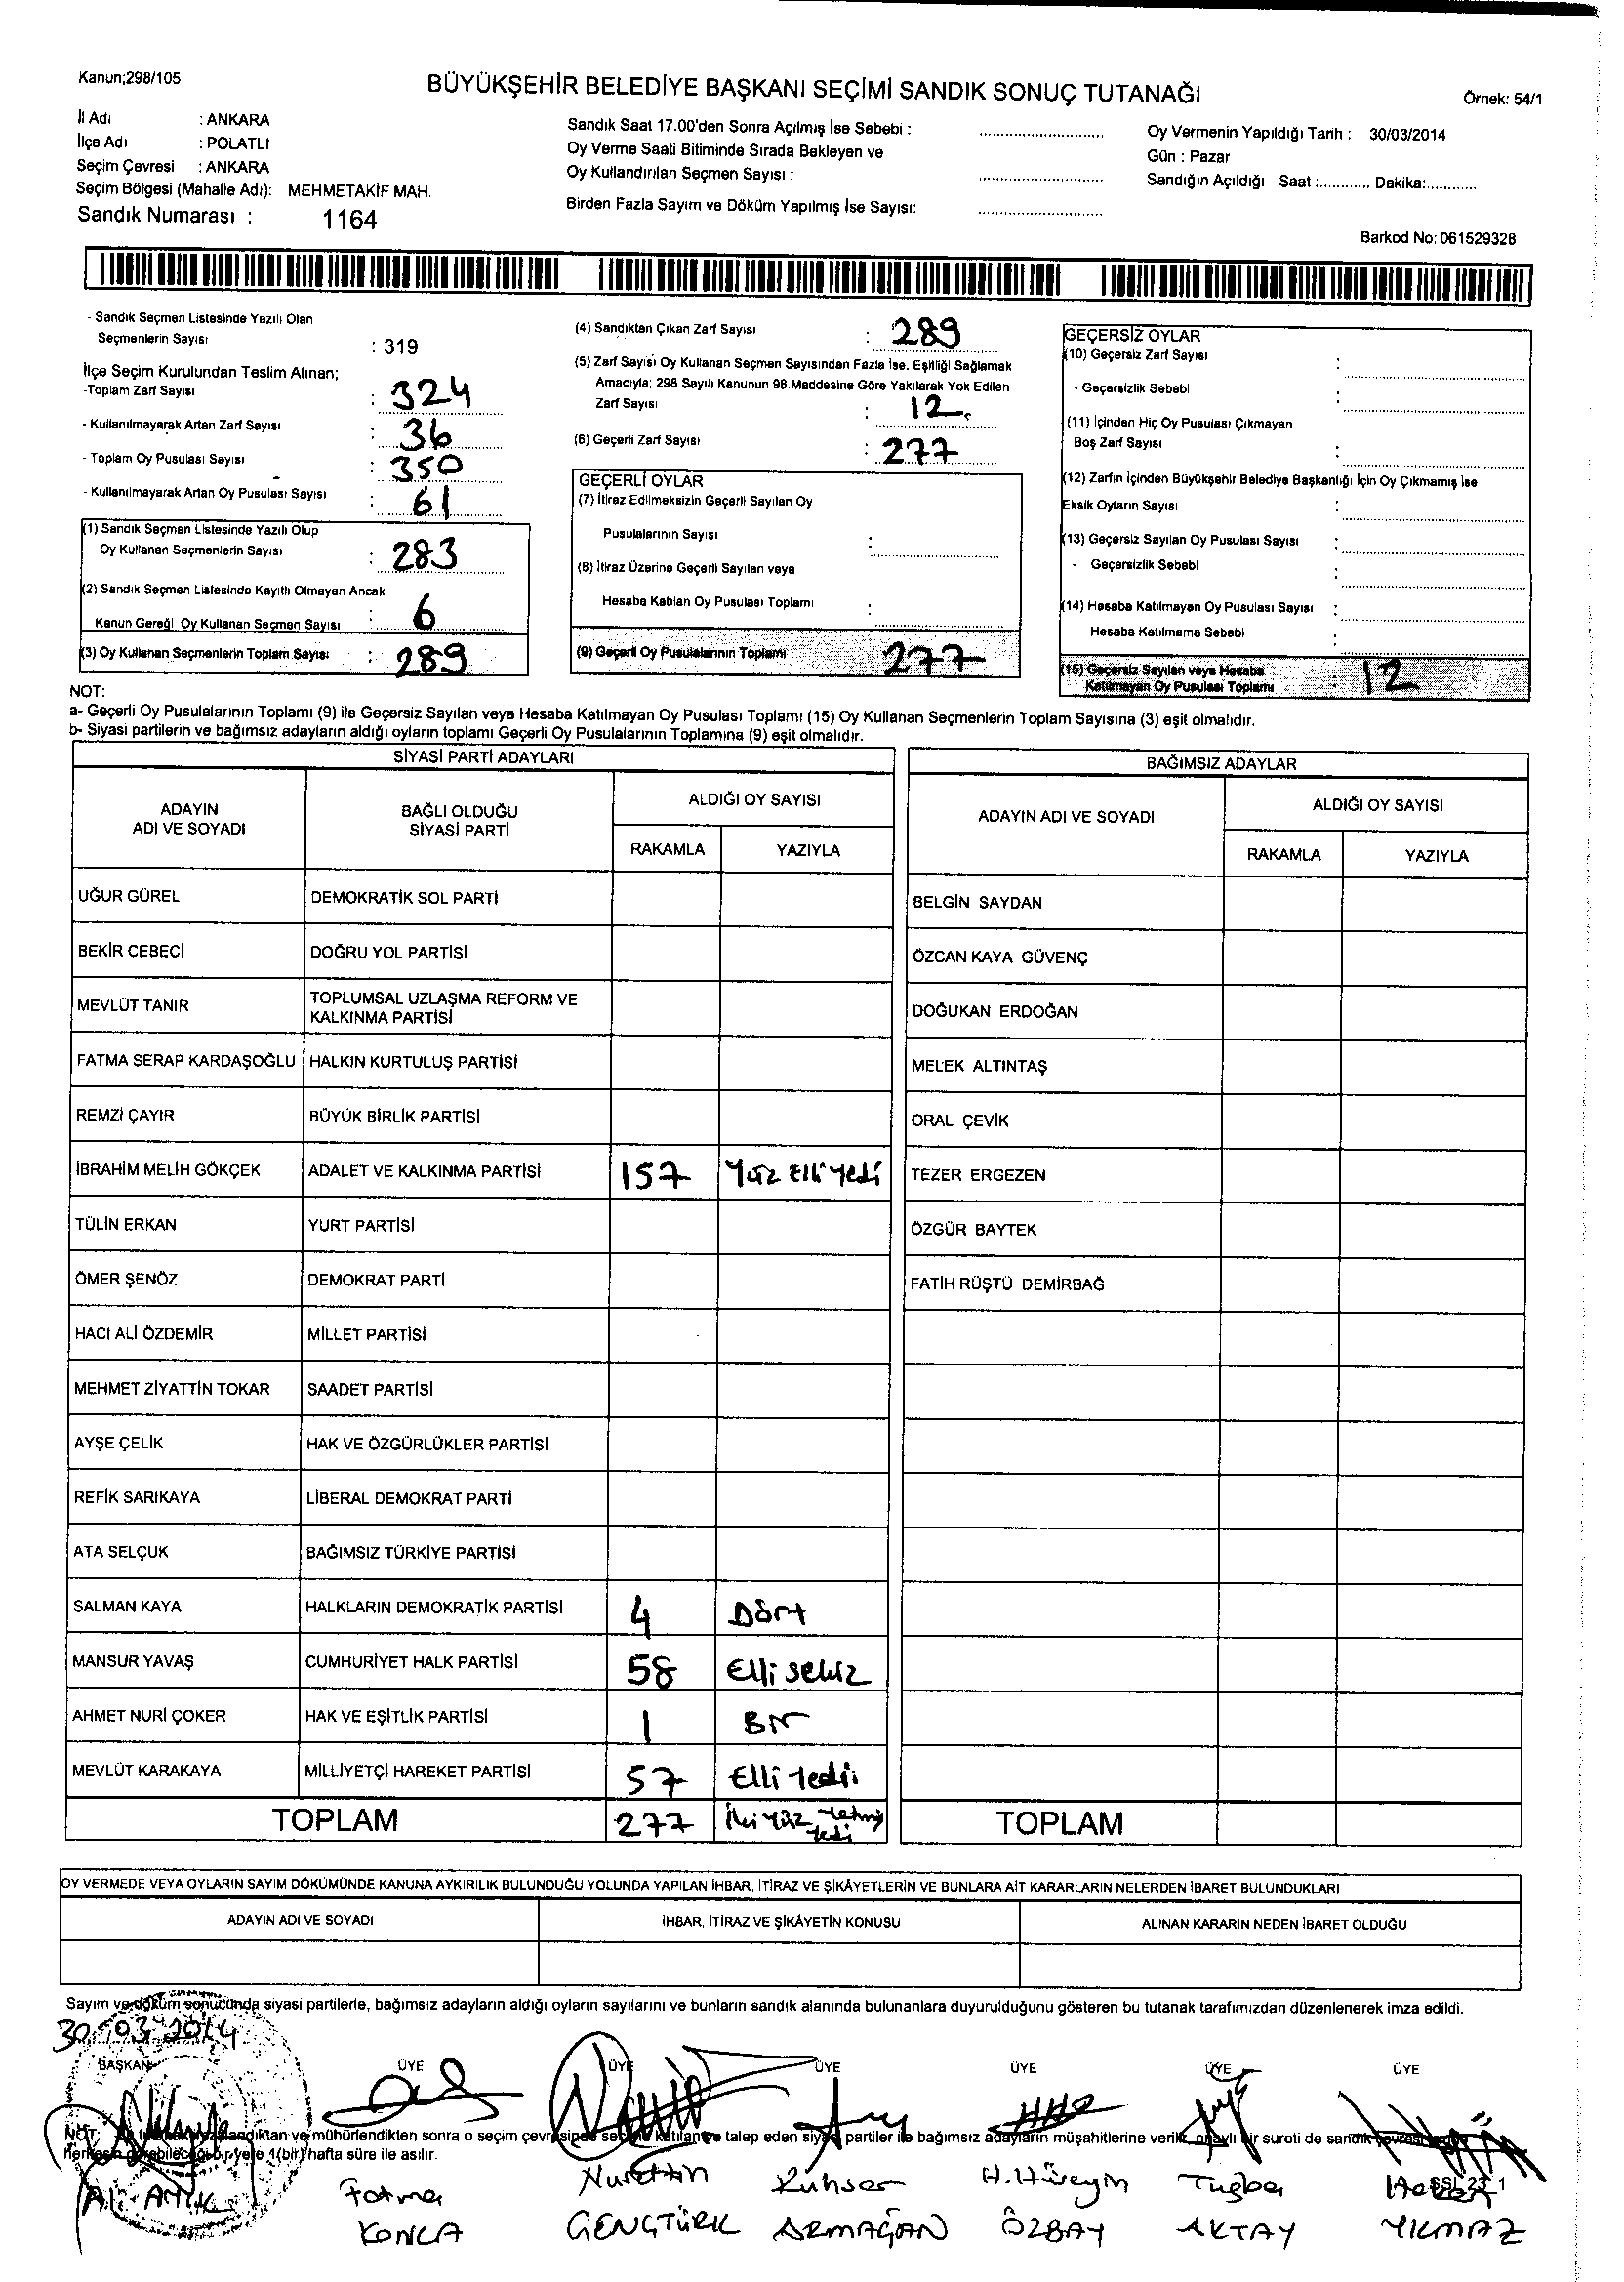 Kanun;298/105
BÜYÜKŞEHİR BELEDİYE BAŞKANI SEÇİMİ SANDIK SONUÇ TUTANAĞI
Örnek: 54/1
İl Adı : ANKARA
İlçe Adı : POLATLI
Seçim Çevresi : ANKARA
Seçim Bölgesi (Mahalle Adı): MEHMETAKİF MAH.
Sandık Numarası : 1164
Sandık Saat 17.00'den Sonra Açılmış İse Sebebi :
Oy Verme Saati Bitiminde Sırada Bekleyen ve
Oy Kullandırılan Seçmen Sayısı :
Birden Fazla Sayım ve Döküm Yapılmış İse Sayısı:
Oy Vermenin Yapıldığı Tarih : 30/03/2014
Gün : Pazar
Sandığın Açıldığı Saat :............ Dakika:............
Barkod No: 061529328
- Sandık Seçmen Listesinde Yazılı Olan
Seçmenlerin Sayısı : 319
İlçe Seçim Kurulundan Teslim Alınan;
-Toplam Zarf Sayısı : 324
- Kullanılmayarak Artan Zarf Sayısı : 36
- Toplam Oy Pusulası Sayısı : 350
- Kullanılmayarak Artan Oy Pusulası Sayısı : 61
(1) Sandık Seçmen Listesinde Yazılı Olup
Oy Kullanan Seçmenlerin Sayısı : 283
(2) Sandık Seçmen Listesinde Kayıtlı Olmayan Ancak
Kanun Gereği Oy Kullanan Seçmen Sayısı : 6
(3) Oy Kullanan Seçmenlerin Toplam Sayısı : 289
(4) Sandıktan Çıkan Zarf Sayısı : 289
(5) Zarf Sayısı Oy Kullanan Seçmen Sayısından Fazla İse. Eşitliği Sağlamak
Amacıyla; 298 Sayılı Kanunun 98.Maddesine Göre Yakılarak Yok Edilen
Zarf Sayısı : 12.
(6) Geçerli Zarf Sayısı : 277
GEÇERLİ OYLAR
(7) İtiraz Edilmeksizin Geçerli Sayılan Oy
Pusulalarının Sayısı :
(8) İtiraz Üzerine Geçerli Sayılan veya
Hesaba Katılan Oy Pusulası Toplamı :
(9) Geçerli Oy Pusulalarının Toplamı 277
GEÇERSİZ OYLAR
(10) Geçersiz Zarf Sayısı :
- Geçersizlik Sebebi :
(11) İçinden Hiç Oy Pusulası Çıkmayan
Boş Zarf Sayısı :
(12) Zarfın İçinden Büyükşehir Belediye Başkanlığı İçin Oy Çıkmamış ise
Eksik Oyların Sayısı :
(13) Geçersiz Sayılan Oy Pusulası Sayısı :
- Geçersizlik Sebebi :
(14) Hesaba Katılmayan Oy Pusulası Sayısı :
- Hesaba Katılmama Sebebi :
(15) Geçersiz Sayılan veya Hesaba
Katılmayan Oy Pusulası Toplamı : 12
NOT:
a- Geçerli Oy Pusulalarının Toplamı (9) ile Geçersiz Sayılan veya Hesaba Katılmayan Oy Pusulası Toplamı (15) Oy Kullanan Seçmenlerin Toplam Sayısına (3) eşit olmalıdır.
b- Siyasi partilerin ve bağımsız adayların aldığı oyların toplamı Geçerli Oy Pusulalarının Toplamına (9) eşit olmalıdır.
SİYASİ PARTİ ADAYLARI
ADAYIN ADI VE SOYADI
BAĞLI OLDUĞU SİYASİ PARTİ
ALDIĞI OY SAYISI
RAKAMLA YAZIYLA
UĞUR GÜREL DEMOKRATİK SOL PARTİ
BEKİR CEBECİ DOĞRU YOL PARTİSİ
MEVLÜT TANIR TOPLUMSAL UZLAŞMA REFORM VE KALKINMA PARTİSİ
FATMA SERAP KARDAŞOĞLU HALKIN KURTULUŞ PARTİSİ
REMZİ ÇAYIR BÜYÜK BİRLİK PARTİSİ
İBRAHİM MELİH GÖKÇEK ADALET VE KALKINMA PARTİSİ 157 Yüz Elli Yedi
TÜLİN ERKAN YURT PARTİSİ
ÖMER ŞENÖZ DEMOKRAT PARTİ
HACI ALİ ÖZDEMİR MİLLET PARTİSİ
MEHMET ZİYATTİN TOKAR SAADET PARTİSİ
AYŞE ÇELİK HAK VE ÖZGÜRLÜKLER PARTİSİ
REFİK SARIKAYA LİBERAL DEMOKRAT PARTİ
ATA SELÇUK BAĞIMSIZ TÜRKİYE PARTİSİ
SALMAN KAYA HALKLARIN DEMOKRATİK PARTİSİ 4 Dört
MANSUR YAVAŞ CUMHURİYET HALK PARTİSİ 58 Elli sekiz
AHMET NURİ ÇOKER HAK VE EŞİTLİK PARTİSİ 1 Bir
MEVLÜT KARAKAYA MİLLİYETÇİ HAREKET PARTİSİ 57 Elli Yedi
TOPLAM 277 İki Yüz Yetmiş Yedi
BAĞIMSIZ ADAYLAR
ADAYIN ADI VE SOYADI
ALDIĞI OY SAYISI
RAKAMLA YAZIYLA
BELGİN SAYDAN
ÖZCAN KAYA GÜVENÇ
DOĞUKAN ERDOĞAN
MELEK ALTINTAŞ
ORAL ÇEVİK
TEZER ERGEZEN
ÖZGÜR BAYTEK
FATİH RÜŞTÜ DEMİRBAĞ
TOPLAM
OY VERMEDE VEYA OYLARIN SAYIM DÖKÜMÜNDE KANUNA AYKIRILIK BULUNDUĞU YOLUNDA YAPILAN İHBAR, İTİRAZ VE ŞİKÂYETLERİN VE BUNLARA AİT KARARLARIN NELERDEN İBARET BULUNDUKLARI
ADAYIN ADI VE SOYADI
İHBAR, İTİRAZ VE ŞİKÂYETİN KONUSU
ALINAN KARARIN NEDEN İBARET OLDUĞU
Sayım ve döküm sonucunda siyasi partilerle, bağımsız adayların aldığı oyların sayılarını ve bunların sandık alanında bulunanlara duyurulduğunu gösteren bu tutanak tarafımızdan düzenlenerek imza edildi.
30.03.2014
BAŞKAN ÜYE ÜYE ÜYE ÜYE ÜYE ÜYE
NOT: mühürlendikten sonra o seçim çevresinde seçime katılan ve talep eden siyasi partiler ile bağımsız adayların müşahitlerine verilir, onaylı bir sureti de sandık
herkesin görebileceği bir yere 1(bir) hafta süre ile asılır.
SSI_23_1
Fatma Nurettin Rühsar H.Hüseyin Tuğba
KONCA GENÇTÜRK ARMAĞAN ÖZBAY AKTAY YILMAZ